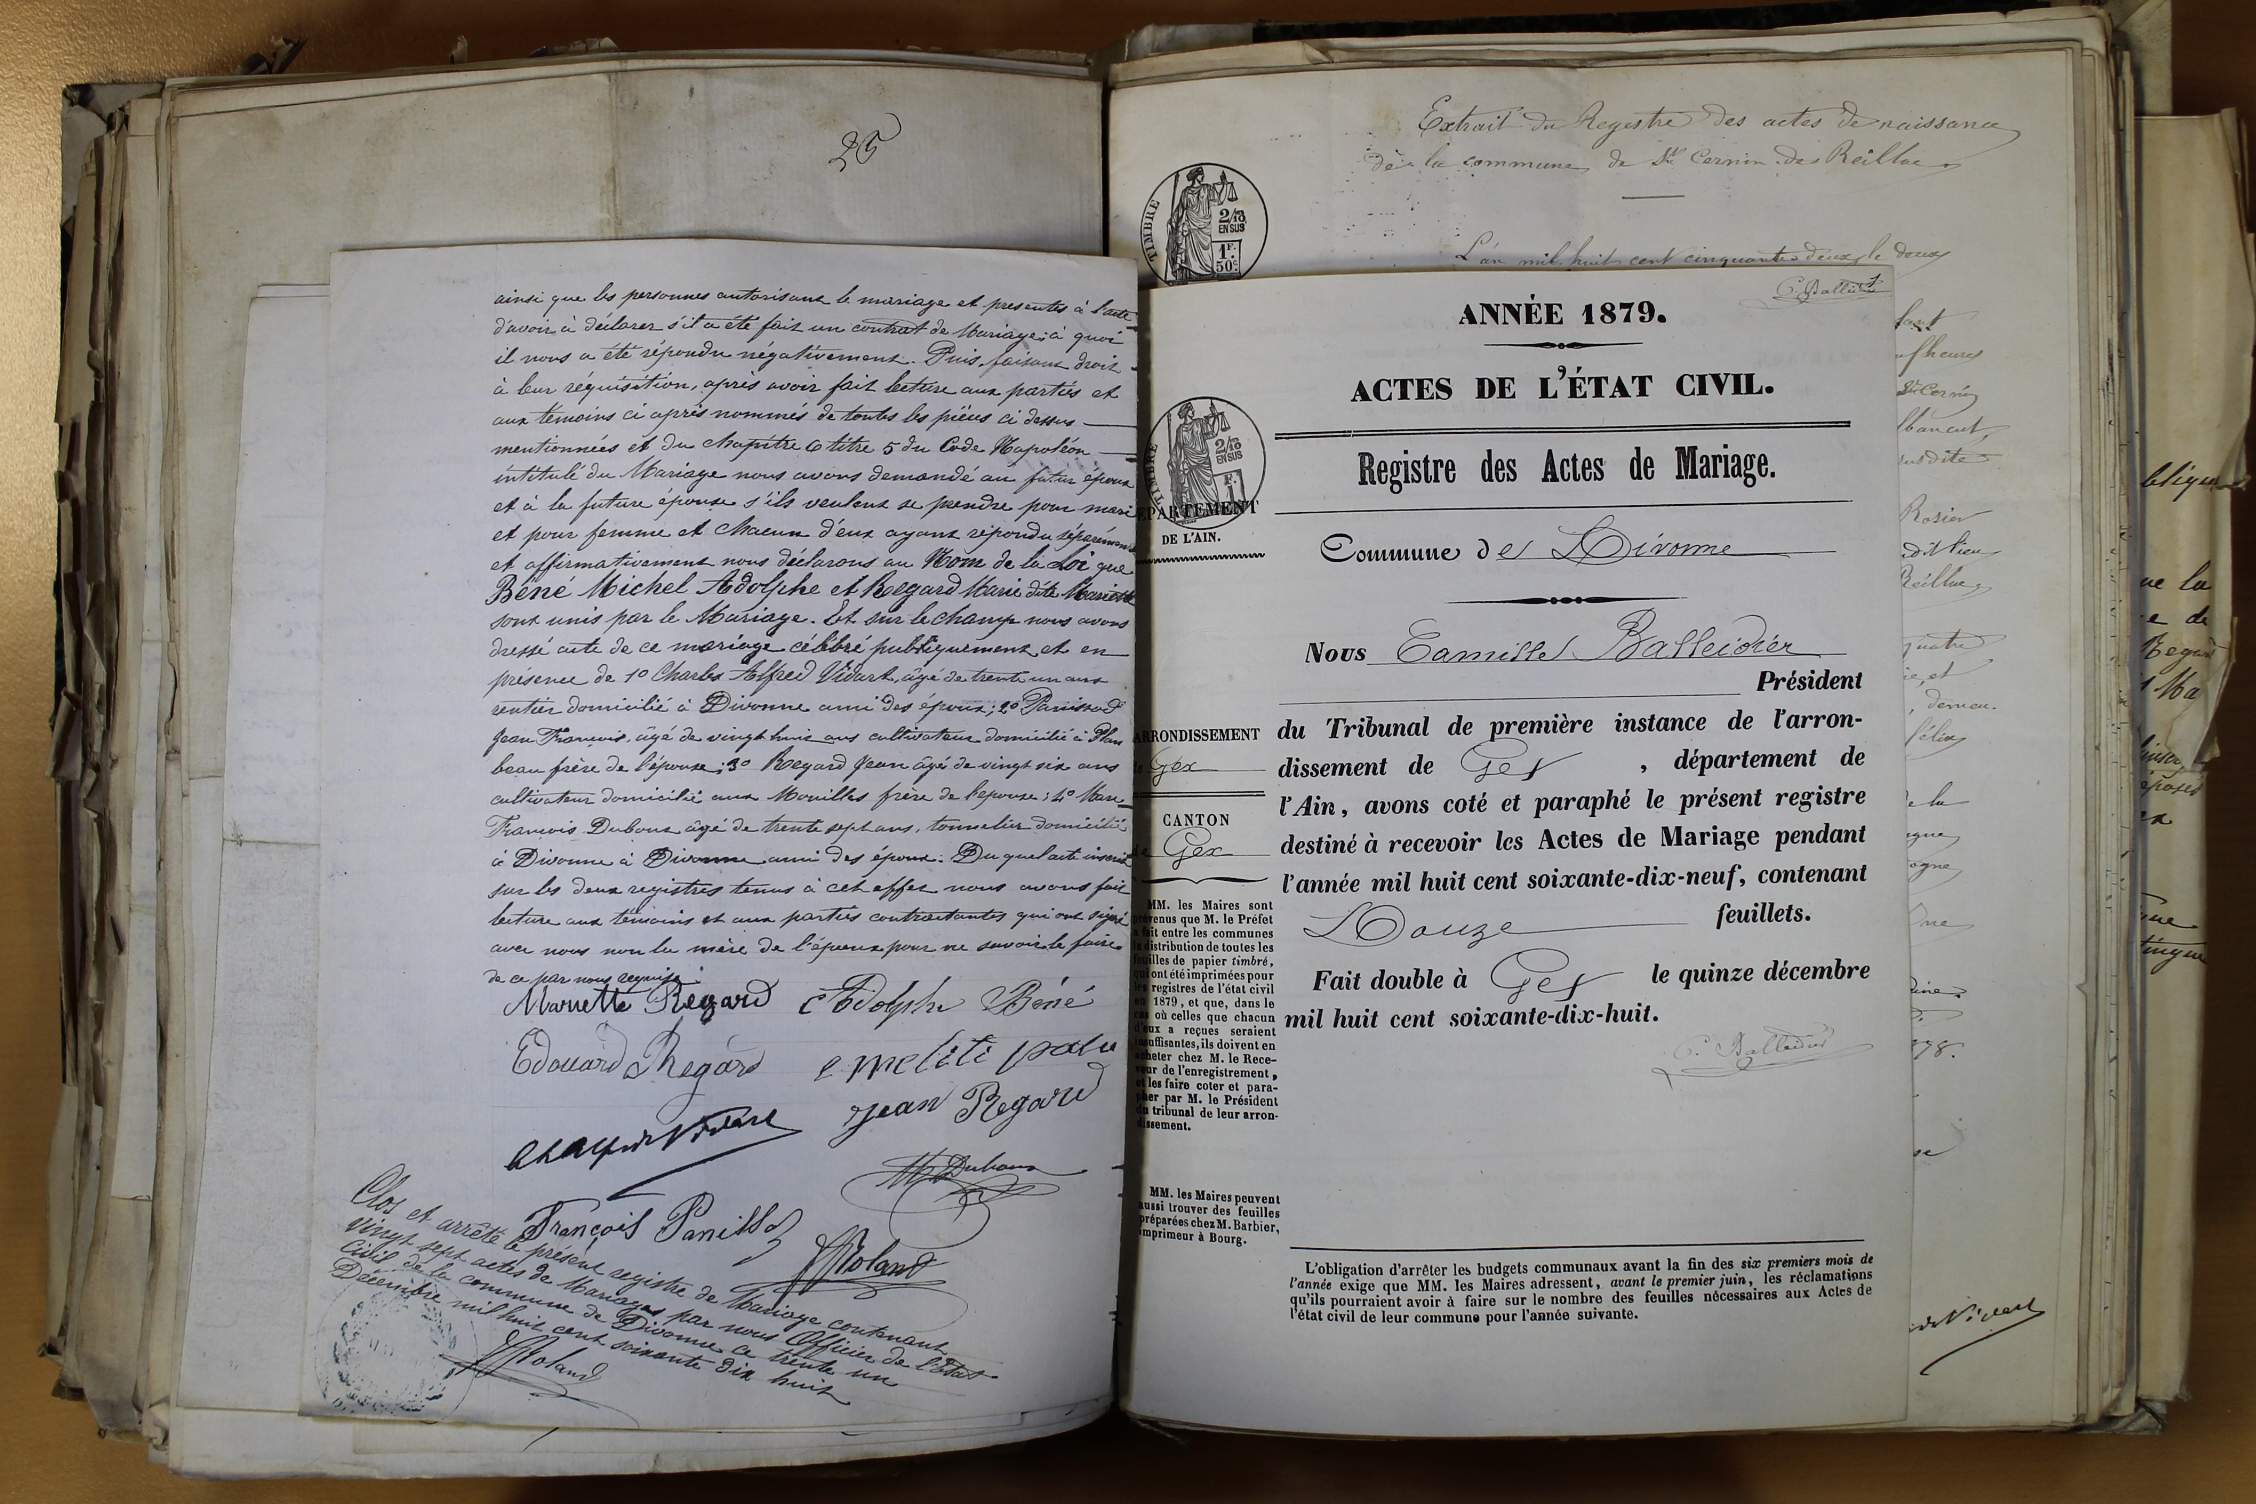 25
ainsi que les personnes autorisant le mariage et presentes à l'acte
d'avoir à déclarer s'il a été fait un contrat de Mariage; à quoi
il nous a été répondu négativement. Puis, faisant droit
à leur réquisition, après avoir fait lecture aux parties et
aux témoins ci après nommés de toutes les pièces ci dessus
mentionnées et du chapitre 6 titre 5 du Code Napoléon
intitulé du Mariage nous avons demandé au futur époux
et à la future épouse s'ils veulent se prendre pour mari
et pour femme et chacun d'eux ayant répondu séparément
et affirmativement nous déclarons au Nom de la Loi que
Béné Michel Adolphe et Regard Marie dite Mariette
sont unis par le Mariage. Et sur le champ nous avons
dressé acte de ce mariage célébré publiquement et en
présence de 1o Charles Alfred Vidart, âgé de trente un ans
rentier domicilié à Divonne ami des époux; 2o Panissod
Jean François, âgé de vingt huit ans cultivateur domicilié à Plan
beau frère de l'épouse; 3o Regard Jean âgé de vingt six ans
cultivateur domicilié aux Mouilles frère de l'épouse; 4o Marc
François Duboux âgé de trente sept ans, tonnelier domicilié
à Divonne à Divonne ami des époux. Du quel acte inscrit
sur les deux registres tenus à cet effet nous avons fait
lecture aux témoins et aux parties contractantes qui ont signé
avec nous non la mère de l'époux pour ne savoir le faire
de ce par nous requise.
Mariette Regard Adolphe Béné
Edouard Regard
Jean Regard
Duboux
François Panissod
Roland
Clos et arrêté le présent registre de Mariage contenant
vingt sept actes de Mariages par nous Officier de l'Etat
Civil de la commune de Divonne ce trente un
Décembre mil huit cent soixante dix huit
Roland
Extrait du Regestre des actes de naissance
de la commune de St Cernin de Reilhac
TIMBRE
2/10
EN SUS
1F.
50c.
L'an mil huit cent cinquante deux le douze
1
C. Balleidier
ANNÉE 1879.
ACTES DE L'ÉTAT CIVIL.
Registre des Actes de Mariage.
TIMBRE
2/10
EN SUS
F.
1
DÉPARTEMENT
DE L'AIN.
Commune de Divonne
Nous Camille Balleidier
Président
ARRONDISSEMENT
de Gex
CANTON
de Gex
du Tribunal de première instance de l'arron-
dissement de Gex , département de
l'Ain, avons coté et paraphé le présent registre
destiné à recevoir les Actes de Mariage pendant
l'année mil huit cent soixante-dix-neuf, contenant
Douze feuillets.
Fait double à Gex le quinze décembre
mil huit cent soixante-dix-huit.
C. Balleidier
MM. les Maires sont
prévenus que M. le Préfet
a fait entre les communes
la distribution de toutes les
feuilles de papier timbré,
qui ont été imprimées pour
les registres de l'état civil
en 1879, et que, dans le
cas où celles que chacun
d'eux a reçues seraient
insuffisantes, ils doivent en
acheter chez M. le Rece-
veur de l'enregistrement,
et les faire coter et para-
pher par M. le Président
du tribunal de leur arron-
dissement.
MM. les Maires peuvent
aussi trouver des feuilles
préparées chez M. Barbier,
imprimeur à Bourg.
L'obligation d'arrêter les budgets communaux avant la fin des six premiers mois de
l'année exige que MM. les Maires adressent, avant le premier juin, les réclamations
qu'ils pourraient avoir à faire sur le nombre des feuilles nécessaires aux Actes de
l'état civil de leur commune pour l'année suivante.